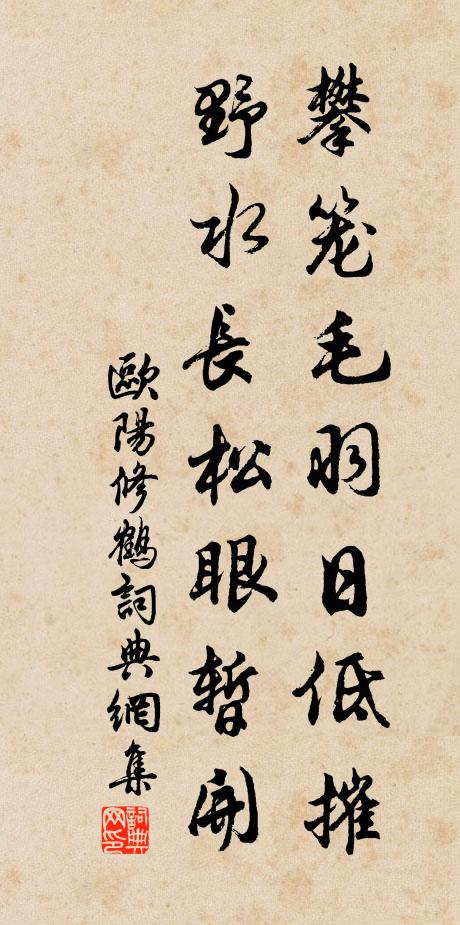 攀笼毛羽日低摧
野水長松眼暫開
歐陽修鶴詞典網集
詞典網印